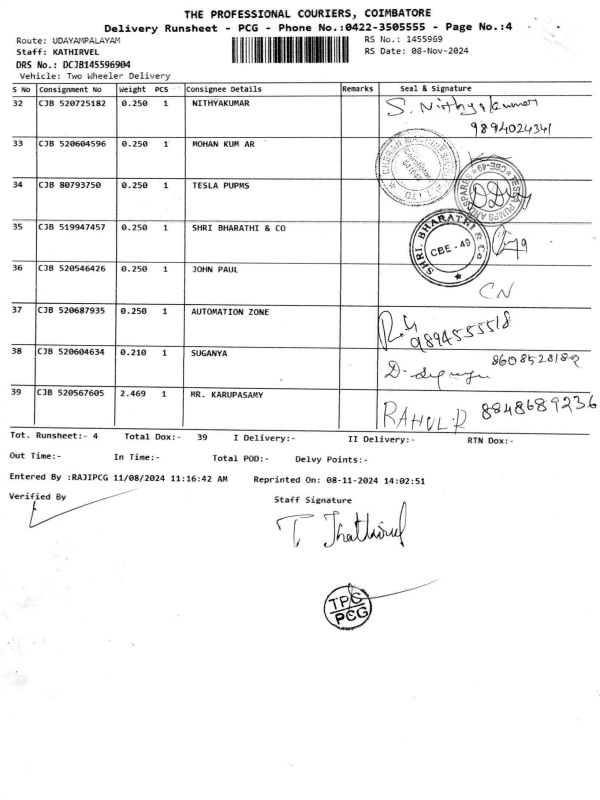 THE PROFESSIONAL COURIERS, COIMBATORE
Delivery Runsheet - PCG - Phone No.:0422-3505555 - Page No.:4
Route: UDAYAMPALAYAM RS No.: 1455969
Staff: KATHIRVEL RS Date: 08-Nov-2024
DRS No.: DCJB145596904
Vehicle: Two Wheeler Delivery
S No Consignment No Weight PCS Consignee Details Remarks Seal & Signature
32 CJB 520725182 0.250 1 NITHYAKUMAR S. Nithyakumar
9894024341
33 CJB 520604596 0.250 1 MOHAN KUM AR
34 CJB 80793750 0.250 1 TESLA PUPMS
TESLA PUMPS AND SPARES CBE-49
35 CJB 519947457 0.250 1 SHRI BHARATHI & CO
SHRI. BHARATHI & Co CBE - 49
36 CJB 520546426 0.250 1 JOHN PAUL
CN
37 CJB 520687935 0.250 1 AUTOMATION ZONE
9894555518
38 CJB 520604634 0.210 1 SUGANYA
39 CJB 520567605 2.469 1 MR. KARUPASAMY RAHUL.R 8848689236
Tot. Runsheet:- 4 Total Dox:- 39 I Delivery:- II Delivery:- RTN Dox:-
Out Time:- In Time:- Total POD:- Delvy Points:-
Entered By :RAJIPCG 11/08/2024 11:16:42 AM Reprinted On: 08-11-2024 14:02:51
Verified By Staff Signature
TPC
PCG